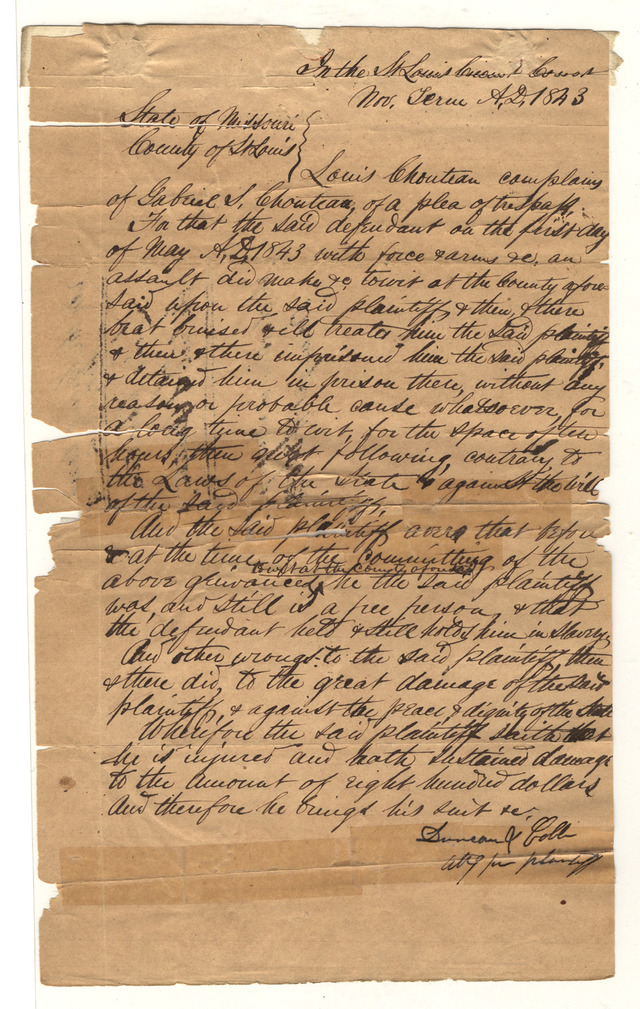 In the St Louis Circuit Court
Nov. Term A.D. 1843
State of Missouri
County of St Louis
Louis Chouteau complains
of Gabriel S. Chouteau, of a plea of trespass,
For that the said defendant on the first day
of May A.D. 1843 with force & arms &c. an
assault did make &c, towit at the County afore-
said upon the said plaintiff, & then, & there
beat bruised & ill treated him the said plaintiff
& then & there imprisoned him the said plaintiff,
& detained him in prison there, without any
reason or probable cause whatsoever, for
a long time to wit, for the space of ten
hours then next following, contrary to
the Laws of the State & against the will
of the said plaintiff,
And the said plaintiff avers that before
& at the time of the committing of the
towit at the county aforesaid
above grievances, he the said plaintiff
was, and still is a free person, & that
the defendant held & still holds him in Slavery,
And other wrongs to the said plaintiff, then
& there did, to the great damage of the said
plaintiff, & against the peace & dignity of the State
Wherefore the said plaintiff saith that
he is injured and hath sustained damage
to the amount of eight hundred dollars
And therefore he brings his suit &c.
Duncan &
atty for plaintiff